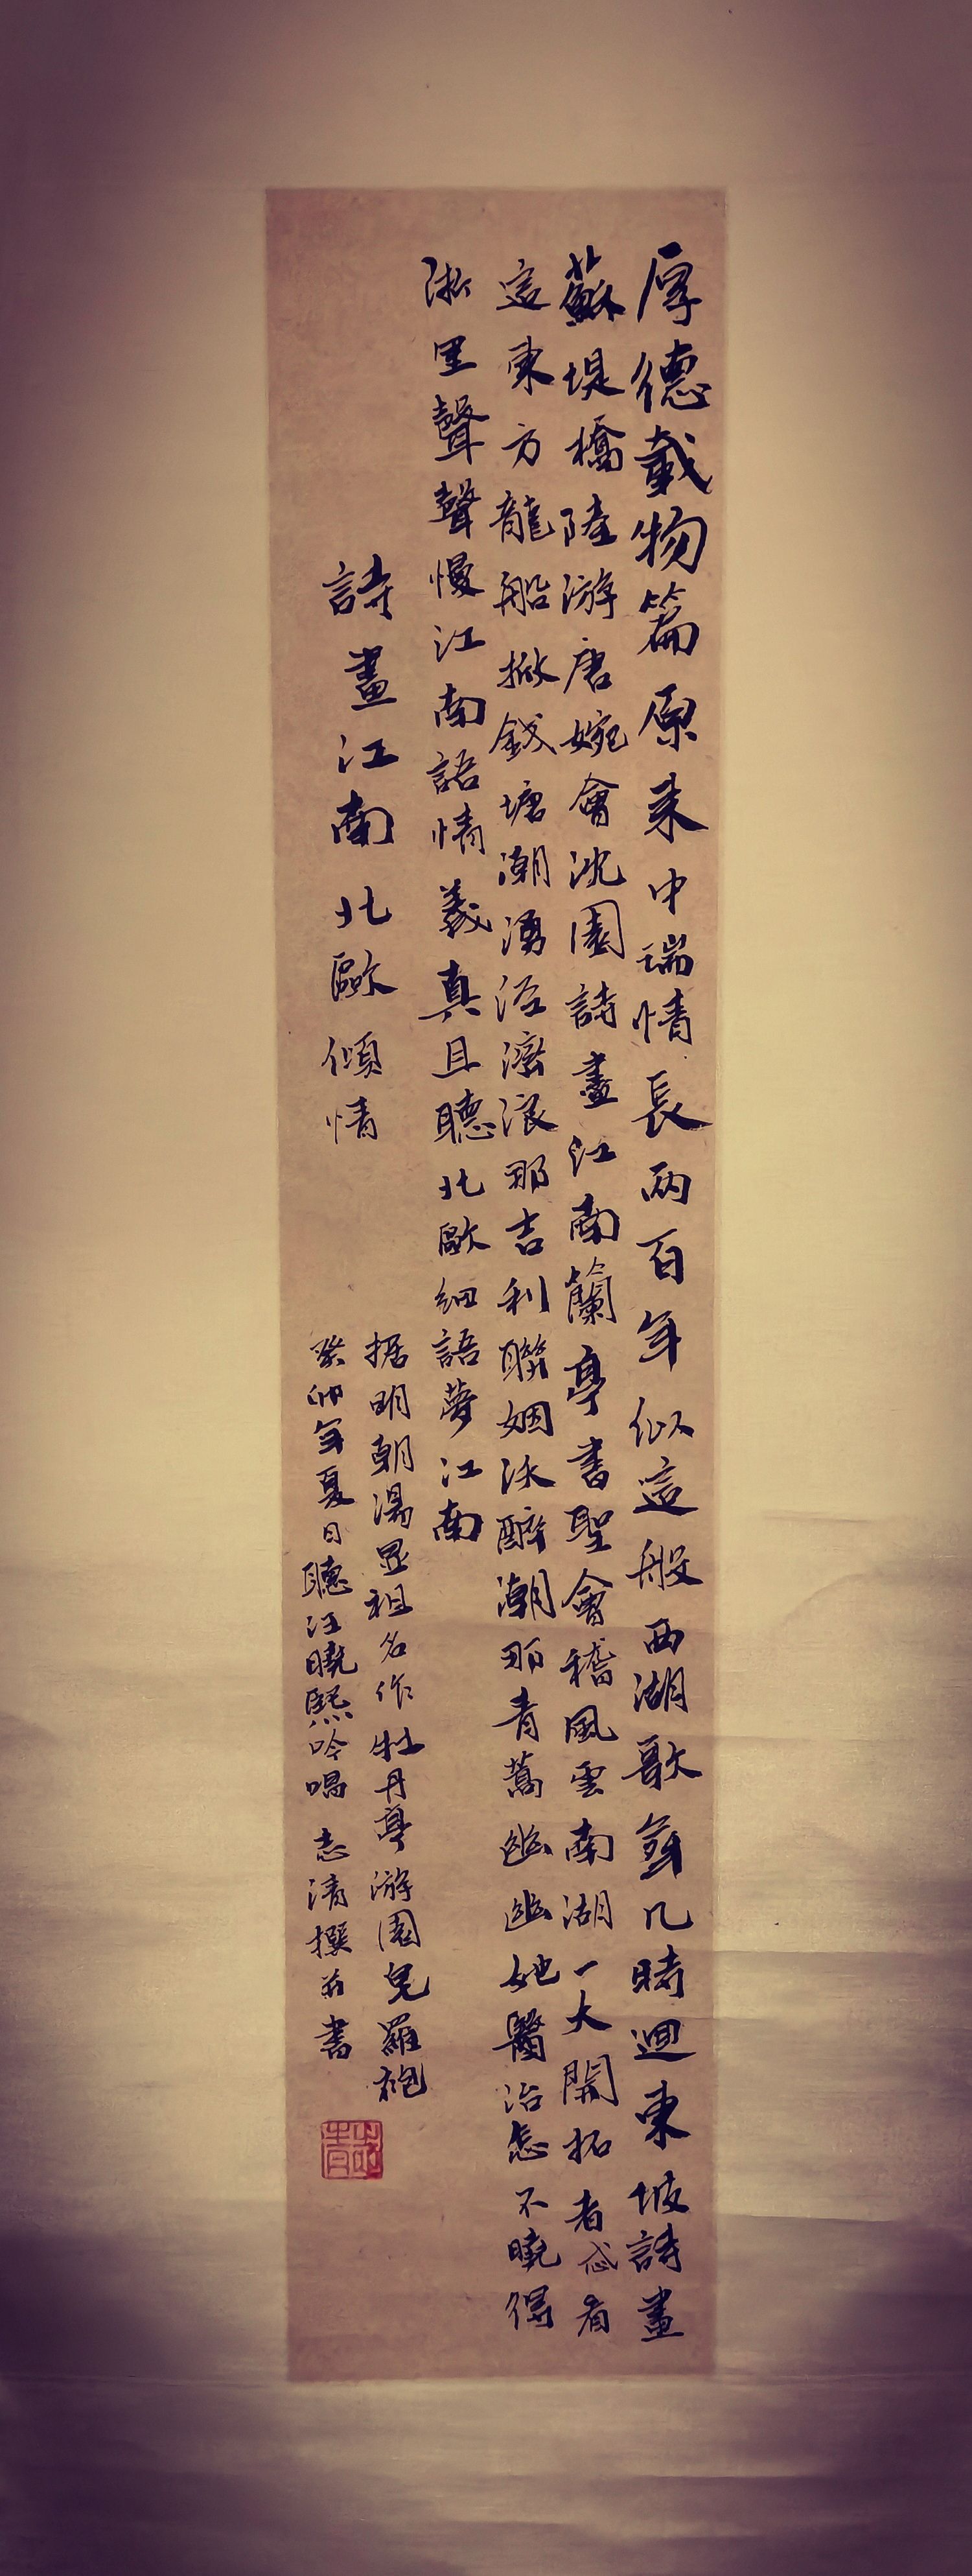 厚德載物篇原來中瑞情長兩百年似這般西湖歌舞几時迴東坡詩畫
蘇堤橋陸游唐婉會沈園詩畫江南蘭亭書聖會稽風雲南湖一大開拓者忒看
這東方龍船掀錢塘潮湧滔浪那吉利聯姻沃醉潮那青蒿幽幽她醫治怎不曉得
浙里聲聲慢江南語情義真且聽北歐細語夢江南
詩畫江南北歐傾情
据明朝湯显祖名作牡丹亭游園皂羅袍
癸卯年夏日聽汪曉熙吟唱志清撰並書